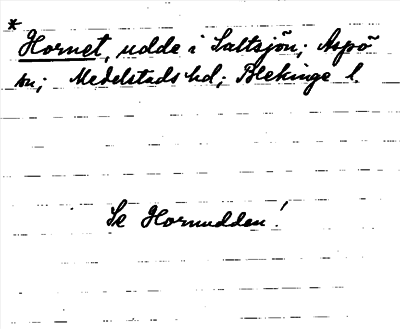 *
Hornet, udde i Saltsjön; Aspö
sn; Medelstads hd; Blekinge l.
Se Hornudden!